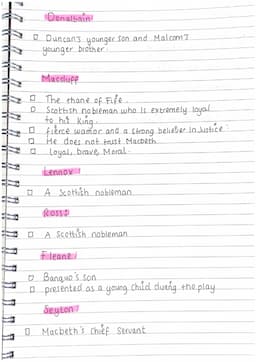 Donalbain
□ Duncan's younger son and Malcom's
younger brother.
Macduff
□ The thane of Fife.
□ Scottish nobleman who is extremely loyal
to his King.
□ fierce warrior and a strong believer in Justice.
□ He does not trust Macbeth
□ Loyal, brave, Moral.
Lennox
□ A Scottish nobleman
Ross
□ A Scottish nobleman
Fleance
□ Banquo's son
□ presented as a young child during the play
Seyton
□ Macbeth's Chief Servant